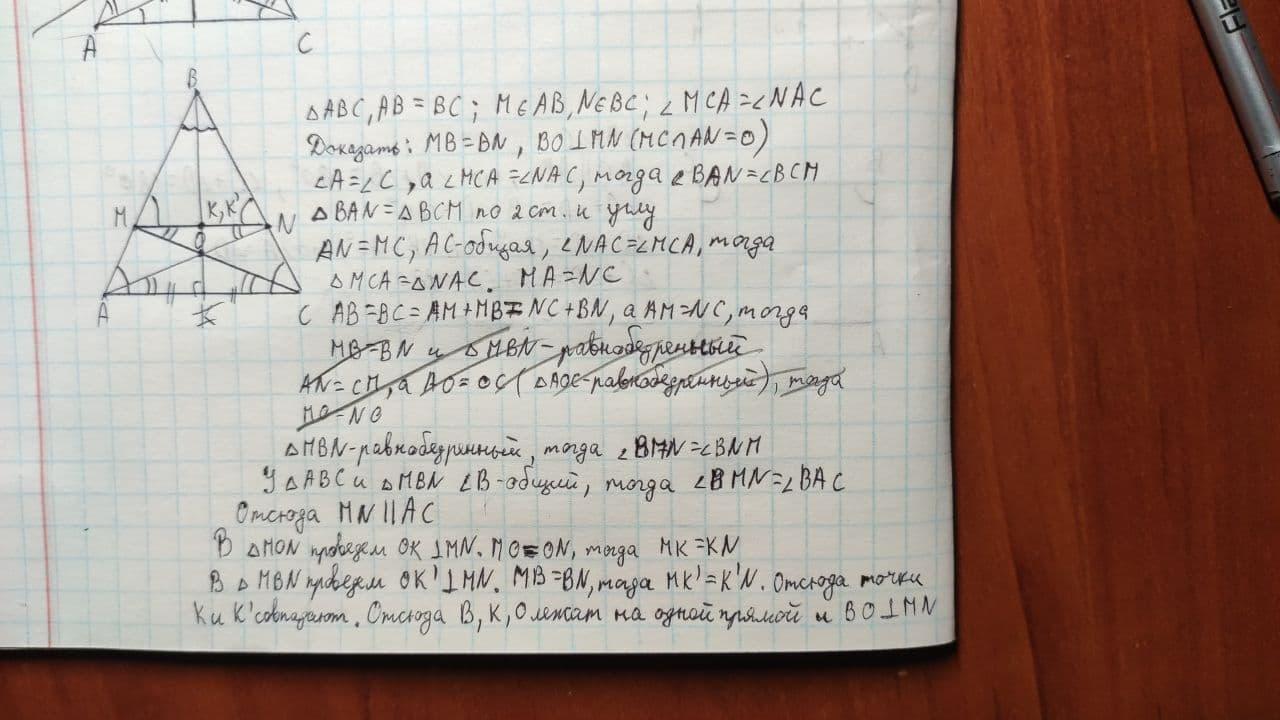 A
C
B
M
K, K'
N
O
A
K
C
△ABC, AB = BC; M∈AB, N∈BC; ∠MCA=∠NAC
Доказать: MB=BN, BO⊥MN (MC∩AN=O)
∠A=∠C, а ∠MCA=∠NAC, тогда ∠BAN=∠BCM
△BAN=△BCM по 2 ст. и углу
AN=MC, AC-общая, ∠NAC=∠MCA, тогда
△MCA=△NAC. MA=NC
AB=BC=AM+MB=NC+BN, а AM=NC, тогда
MB=BN и △MBN-равнобедренный
AN=CM, а AO=OC (△AOC-равнобедренный), тогда
MO=NO
△MBN-равнобедренный, тогда ∠BMN=∠BNM
У △ABC и △MBN ∠B-общий, тогда ∠BMN=∠BAC
Отсюда MN||AC
В △MON проведем OK⊥MN. MO=ON, тогда MK=KN
В △MBN проведем OK'⊥MN. MB=BN, тогда MK'=K'N. Отсюда точки
K и K' совпадают. Отсюда B, K, O лежат на одной прямой и BO⊥MN